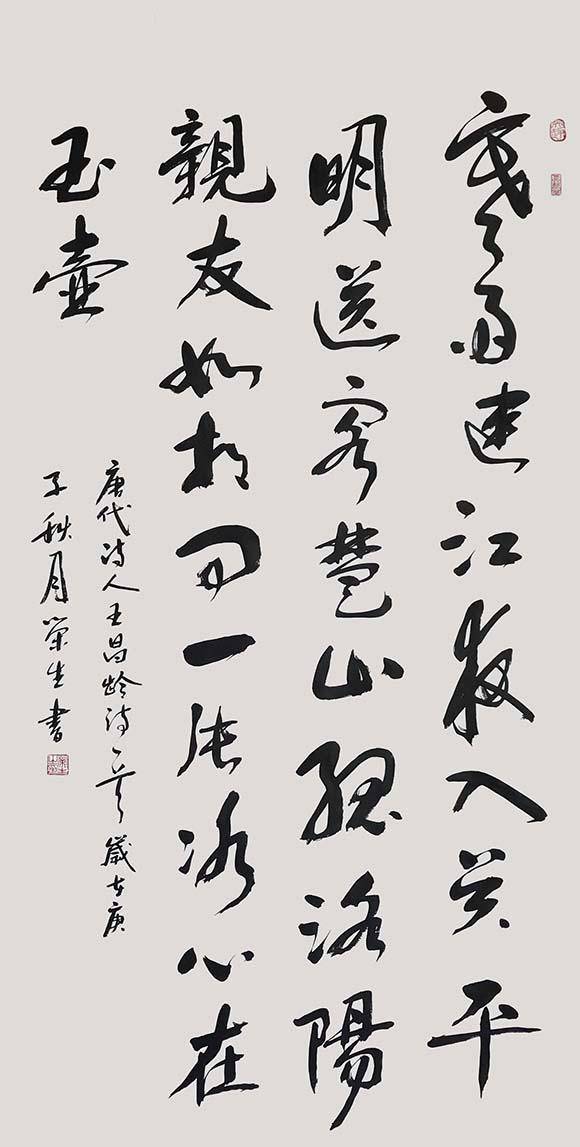 寒雨連江夜入吴平
明送客楚山孤洛陽
親友如相问一片冰心在
玉壺
唐代诗人王昌龄诗一首歲在庚
子秋月荣生書